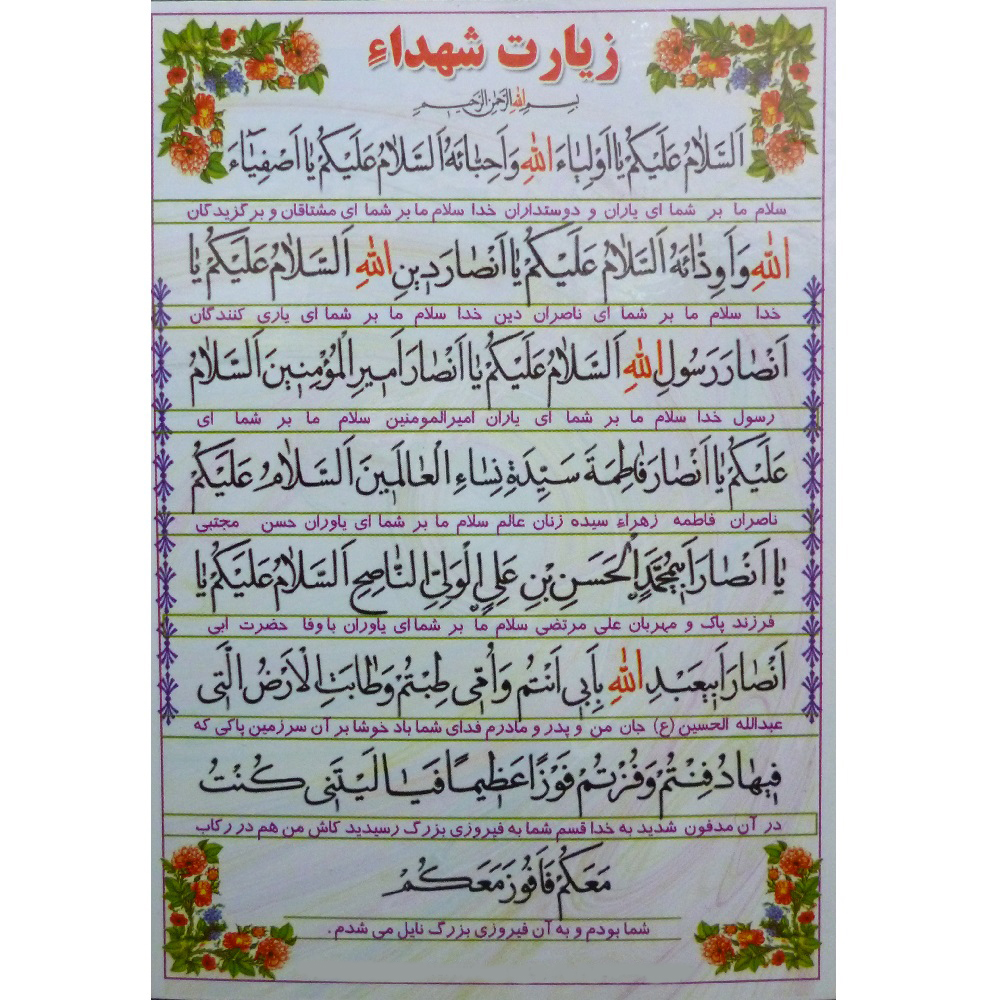 زیارت شهداءِ
بِسْمِ اللهِ الرَّحْمنِ الرَّحیمِ
اَلسَّلامُ عَلَیْکُمْ یا اَوْلِیاءَ اللهِ وَ اَحِبّائَهُ اَلسَّلامُ عَلَیْکُمْ یا اَصْفِیاءَ
سلام ما بر شما ای یاران و دوستداران خدا سلام ما بر شما ای مشتاقان و برگزیدگان
اللهِ وَ اَوِدّائَهُ اَلسَّلامُ عَلَیْکُمْ یا اَنْصارَ دینِ اللهِ اَلسَّلامُ عَلَیْکُمْ یا
خدا سلام ما بر شما ای ناصران دین خدا سلام ما بر شما ای یاری کنندگان
اَنْصارَ رَسُولِ اللهِ اَلسَّلامُ عَلَیْکُمْ یا اَنْصارَ اَمیرِ الْمُؤْمِنینَ اَلسَّلامُ
رسول خدا سلام ما بر شما ای یاران امیرالمومنین سلام ما بر شما ای
عَلَیْکُمْ یا اَنْصارَ فاطِمَةَ سَیِّدَةِ نِساءِ الْعالَمینَ اَلسَّلامُ عَلَیْکُمْ
ناصران فاطمه زهراء سیده زنان عالم سلام ما بر شما ای یاوران حسن مجتبی
یا اَنْصارَ اَبیمُحَمَّدٍ الْحَسَنِ بْنِ عَلِیٍ الْوَلِیِّ النّاصِحِ اَلسَّلامُ عَلَیْکُمْ یا
فرزند پاک و مهربان علی مرتضی سلام ما بر شما ای یاوران با وفا حضرت ابی
اَنْصارَ اَبیعَبْدِ اللهِ بِاَبی اَنْتُمْ وَ اُمّی طِبْتُمْ وَ طابَتِ الْاَرْضُ الَّتی
عبدالله الحسین (ع) جان من و پدر و مادرم فدای شما باد خوشا بر آن سرزمین پاکی که
فیها دُفِنْتُمْ وَ فُزْتُمْ فَوْزًا عَظیمًا فَیا لَیْتَنی کُنْتُ
در آن مدفون شدید به خدا قسم شما به فیروزی بزرگ رسیدید کاش من هم در رکاب
مَعَکُمْ فَاَفُوزَ مَعَکُمْ
شما بودم و به آن فیروزی بزرگ نایل می شدم.